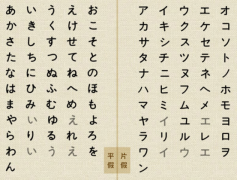 オコソトノホモヨロヲ
エケセテネヘメエレエ
ウクスツヌフムユルウ
イキシチニヒミイリイ
アカサタナハマヤラワン
片假
平假
おこそとのほもよろを
えけせてねへめえれえ
うくすつぬふむゆるう
いきしちにひみいりい
あかさたなはまやらわん